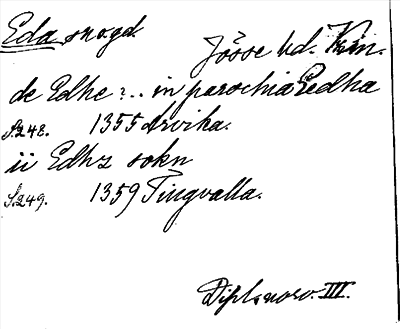 Eda, snogd.
Jösse hd. Krin.
de Edhe ?.. in parochia Eedha
S.248. 1355 Arvika.
ii Edhz sokn
S.249. 1359 Tingvalla.
Dipl. norv. III.